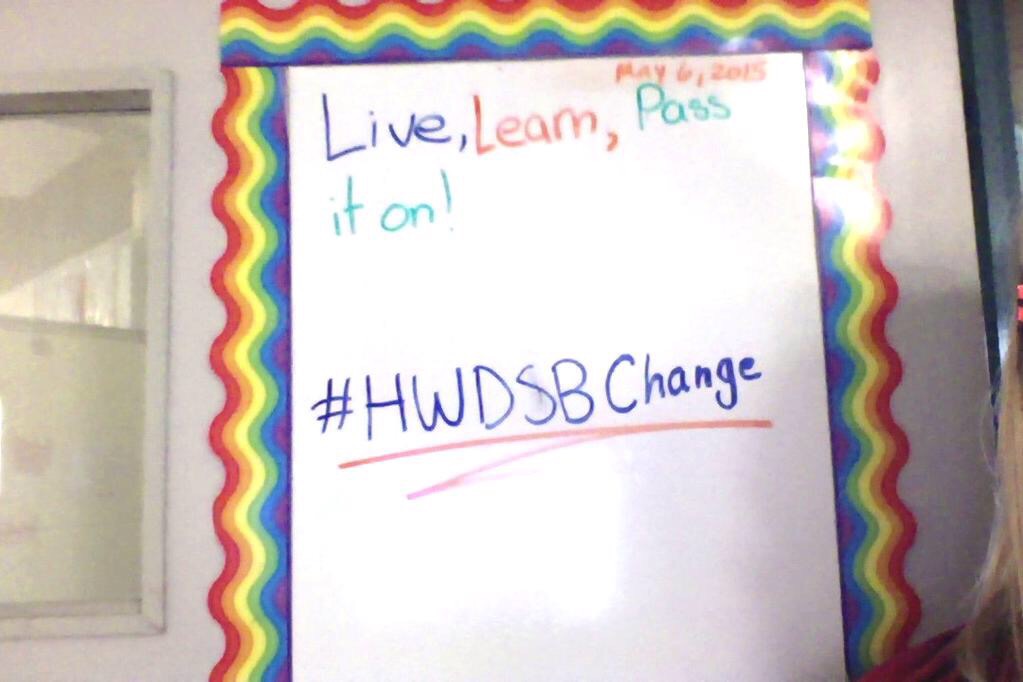 May 6, 2015
Live, Learn, Pass
it on!
#HWDSB Change